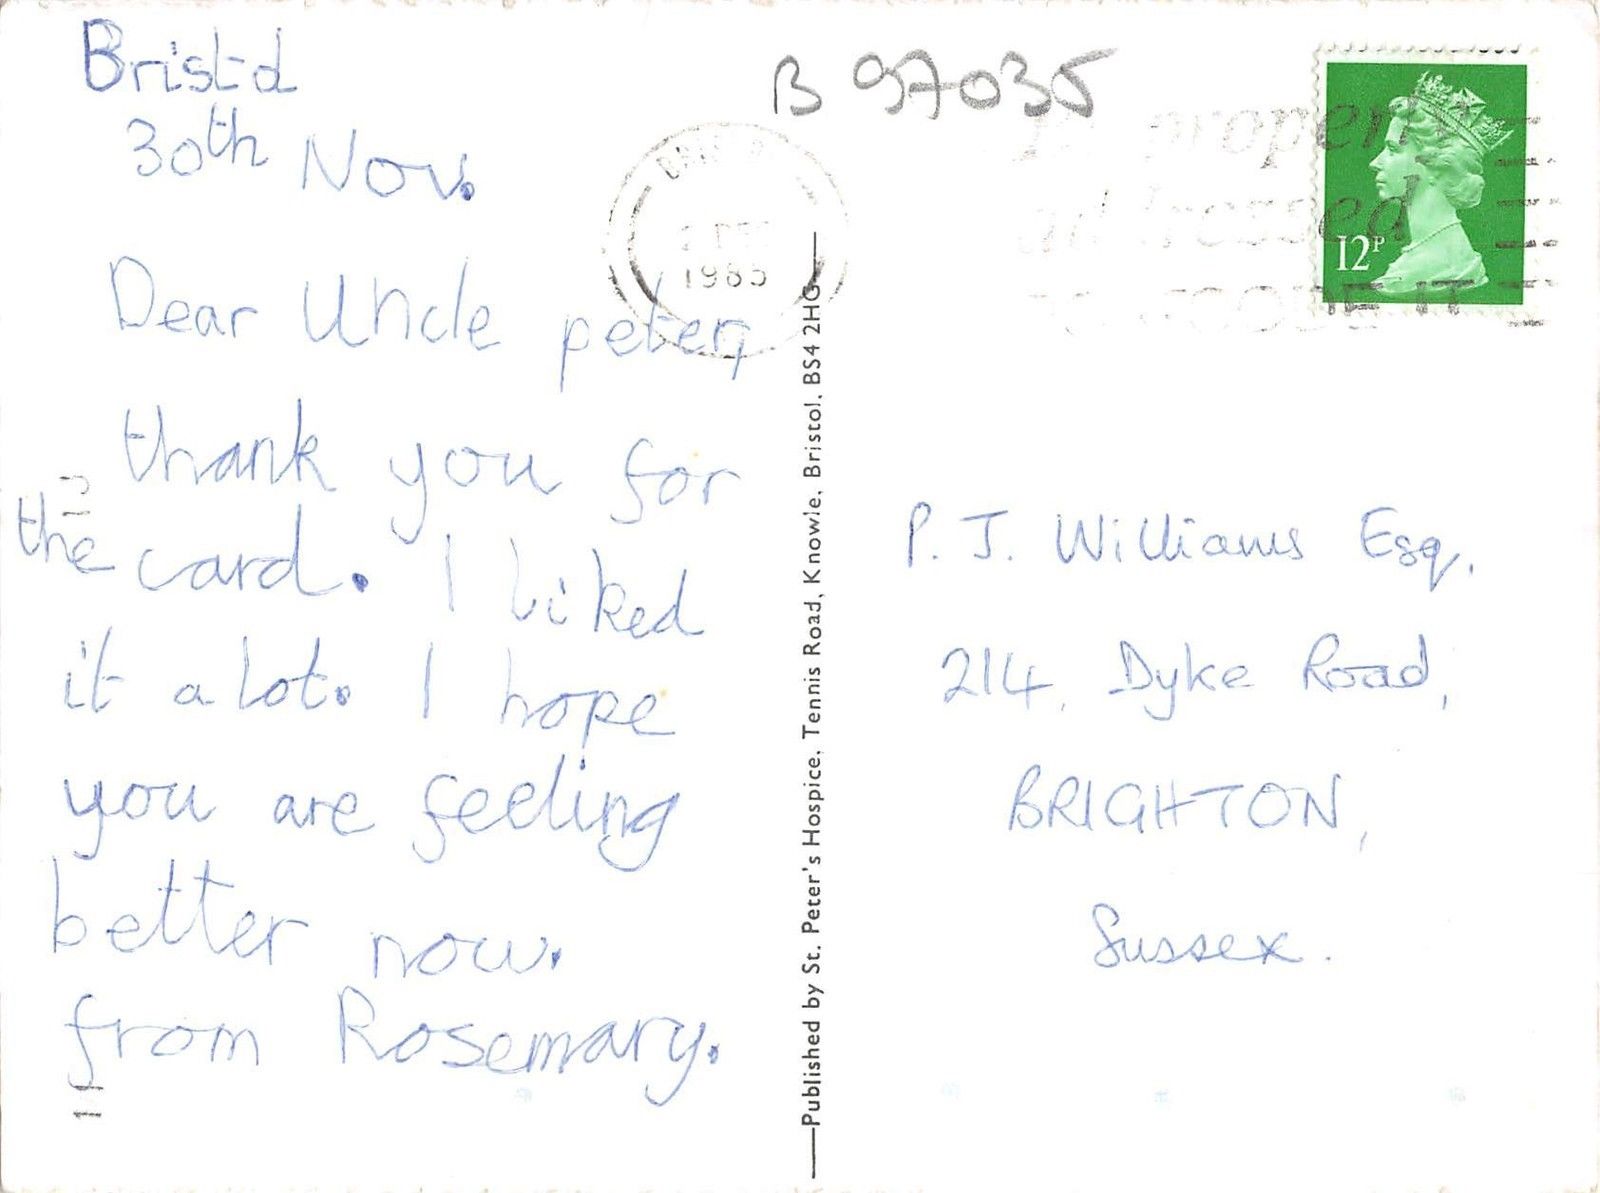 Bristol
30th Nov.
Dear Uncle peter,
thank you for
the card. I liked
it a lot. I hope
you are feeling
better now.
from Rosemary.
B 97035
1985
properly
addressed
IT
12P
Published by St. Peter's Hospice, Tennis Road, Knowle, Bristol. BS4 2HG
P. J. Williams Esq.
214, Dyke Road,
BRIGHTON,
Sussex.